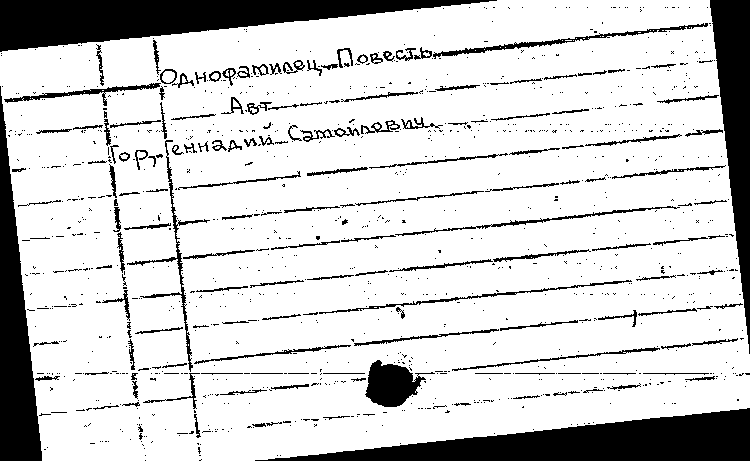 Однофамилец. Повесть.
Авт.
Гор, Геннадий Самойлович.